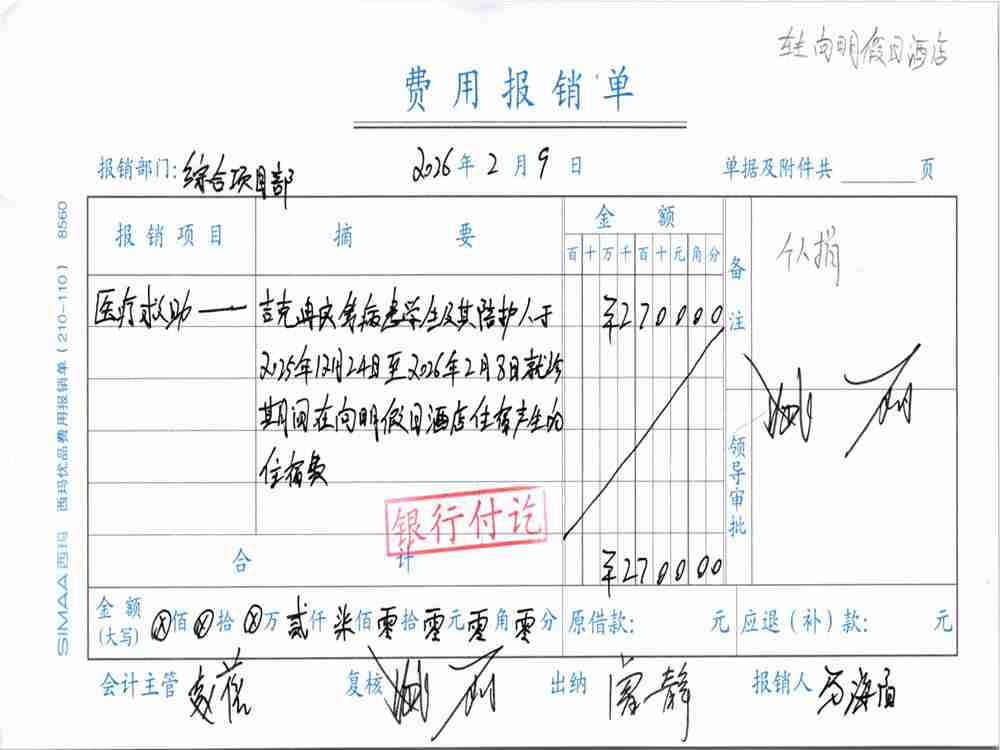 转向明假日酒店
费用报销单
报销部门: 综合项目部 2026年2月9日 单据及附件共 页
报销项目 摘要 金额
百十万千百十元角分
备注
个人捐
医疗救助—— 吉克 患学生及其陪护人于 ¥270000
2025年12月24日至2026年2月8日就诊
期间在向明假日酒店住宿产生的
住宿费
领导审批
银行付讫
合计 ¥270000
金额(大写) ⊗佰⊗拾⊗万贰仟柒佰零拾零元零角零分 原借款: 元 应退(补)款: 元
会计主管 复核 出纳 报销人
SIMAA西玛 西玛优品费用报销单(210-110) 8560